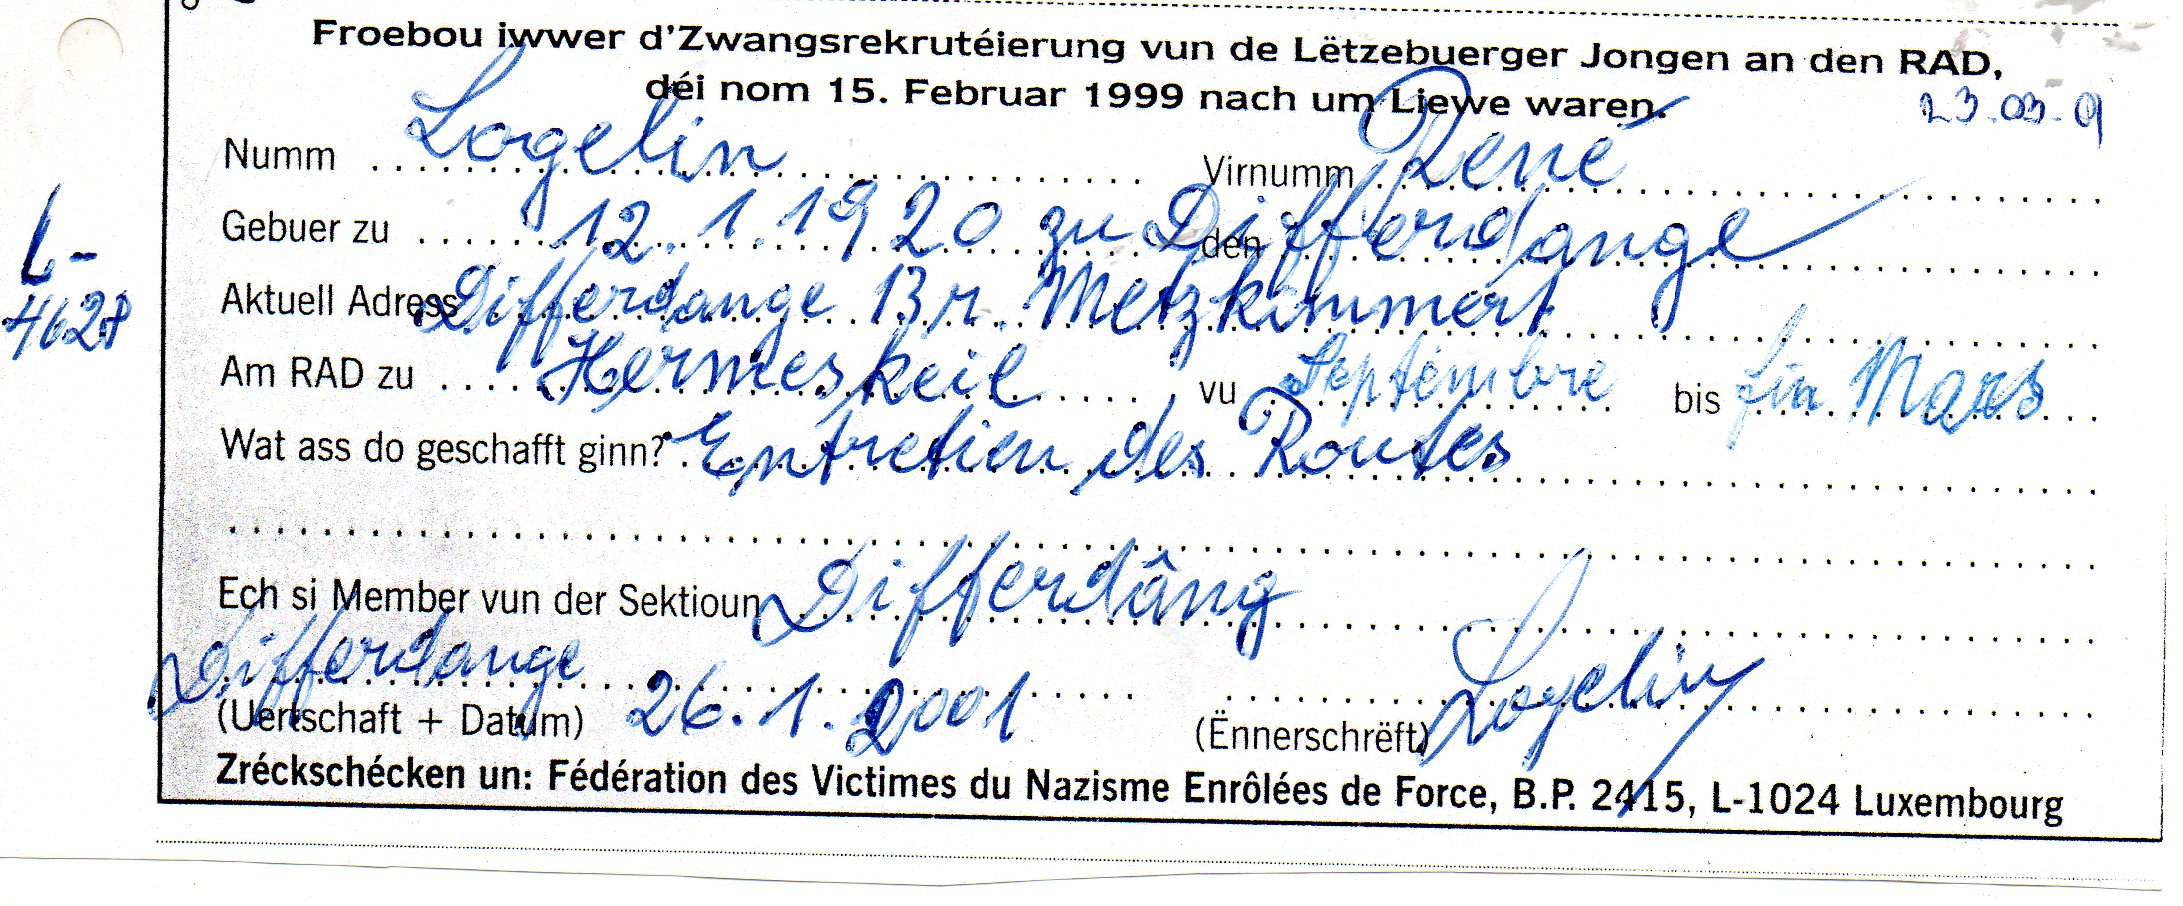 Froebou iwwer d'Zwangsrekrutéierung vun de Lëtzebuerger Jongen an den RAD,
déi nom 15. Februar 1999 nach um Liewe waren.
23.03.9
Numm Logelin Virnumm René
Gebuer zu 12.1.1920 zu Differdange den
L-4628
Aktuell Adress Differdange 13 r. Metzkimmert
Am RAD zu Hermeskeil vu Septembre bis fin Mars
Wat ass do geschafft ginn? Entretien des Routes
Ech si Member vun der Sektioun Differdâng
Differdange 26.1.2001 Logelin
(Uertschaft + Datum) (Ënnerschrëft)
Zréckschécken un: Fédération des Victimes du Nazisme Enrôlées de Force, B.P. 2415, L-1024 Luxembourg